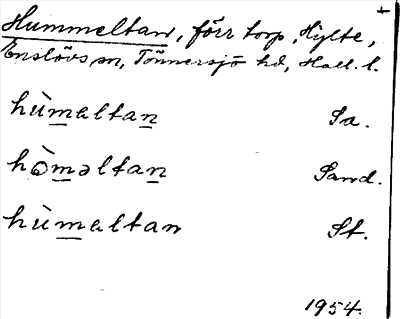 +
Hummeltan, förr torp, Hylte,
Enslövs sn, Tönnersjö hd, Hall. l.
hùmaltan Sa.
hòməltan Sand.
hùmaltan St.
1954.